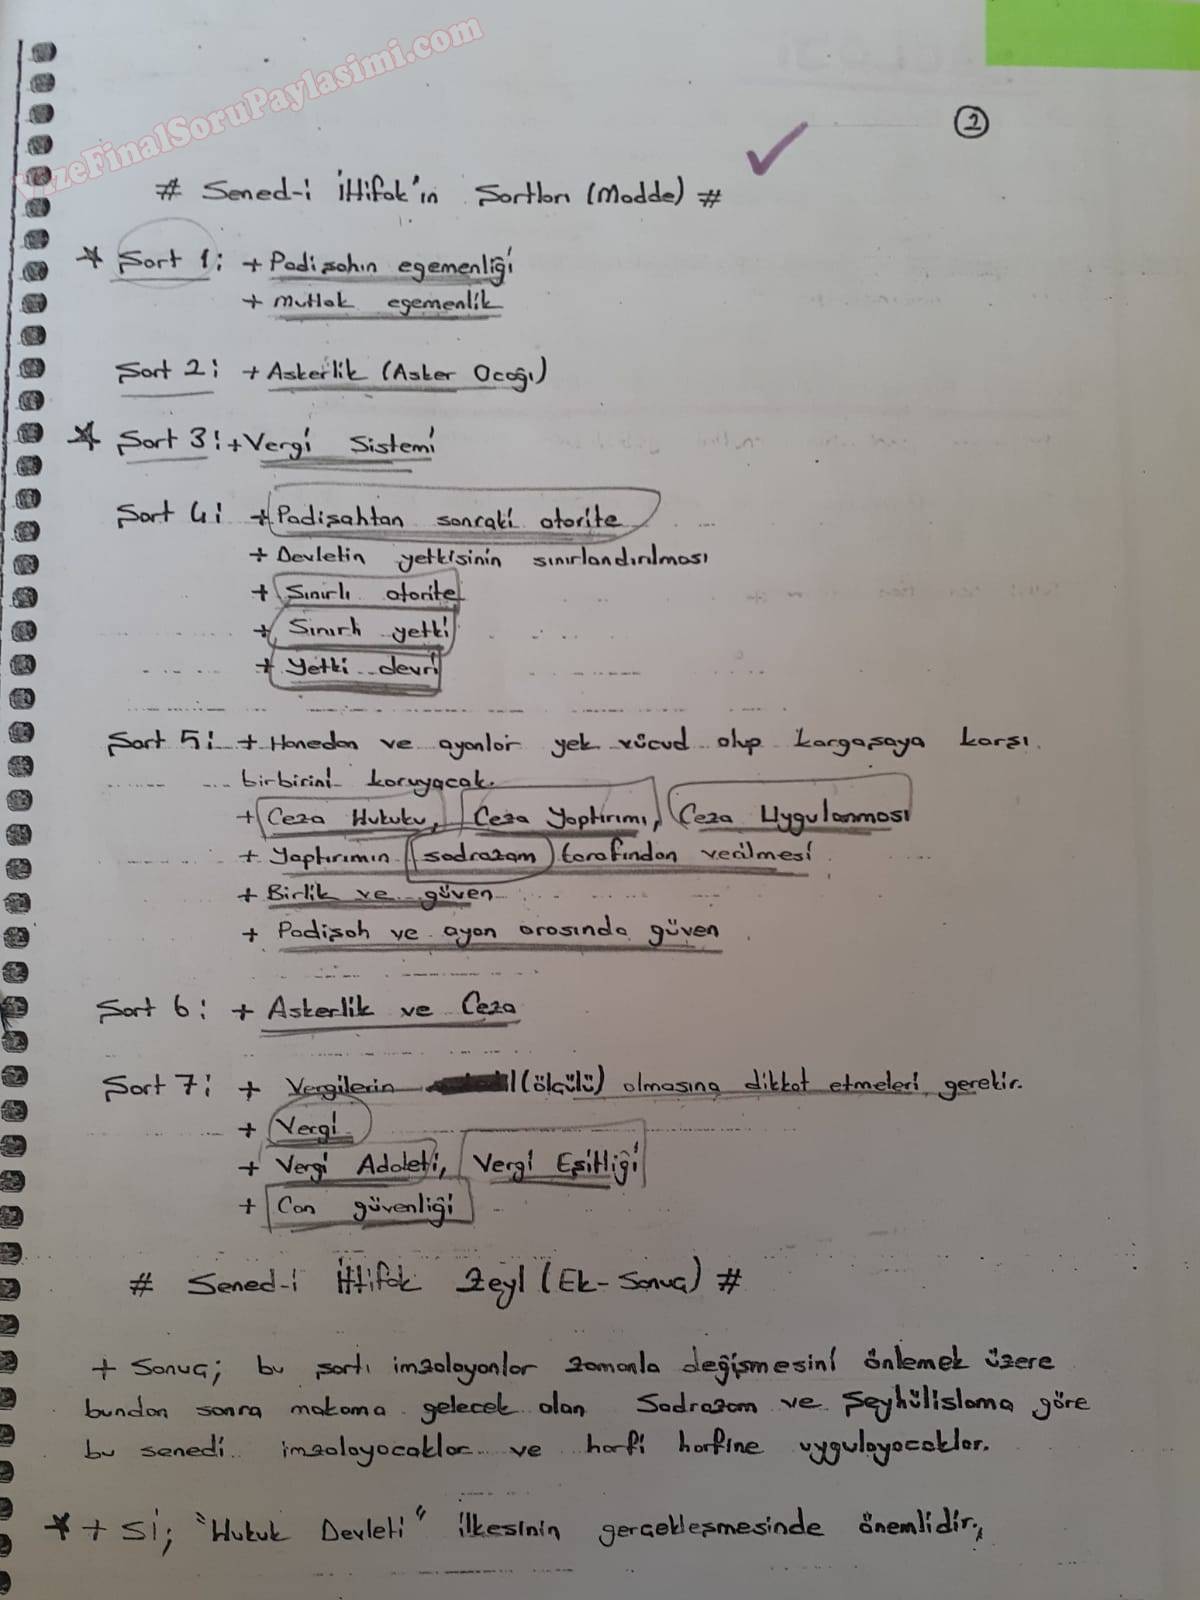 VizeFinalSoruPaylasimi.com
2
# Sened-i İttifak'ın Şartları (Madde) #
* Şart 1: + Padişahın egemenliği
+ Mutlak egemenlik
Şart 2: + Askerlik (Asker Ocağı)
* Şart 3: + Vergi Sistemi
Şart 4: + Padişahtan sonraki otorite
+ Devletin yetkisinin sınırlandırılması
+ Sınırlı otorite
+ Sınırlı yetki
+ Yetki devri
Şart 5: + Hanedan ve ayanlar yek vücud olup kargaşaya karşı
birbirini koruyacak.
+ Ceza Hukuku, Ceza Yaptırımı, Ceza Uygulanması
+ Yaptırımın sadrazam tarafından verilmesi
+ Birlik ve güven
+ Padişah ve ayan arasında güven
Şart 6: + Askerlik ve Ceza
Şart 7: + Vergilerin (ölçülü) olmasına dikkat etmeleri gerekir.
+ Vergi
+ Vergi Adaleti, Vergi Eşitliği
+ Can güvenliği
# Sened-i İttifak Zeyl (Ek-Sonuç) #
+ Sonuç; bu şartı imzalayanlar zamanla değişmesini önlemek üzere
bundan sonra makama gelecek olan Sadrazam ve Şeyhülislama göre
bu senedi imzalayacaklar ve harfi harfine uygulayacaklar.
* + Sİ; "Hukuk Devleti" ilkesinin gerçekleşmesinde önemlidir.